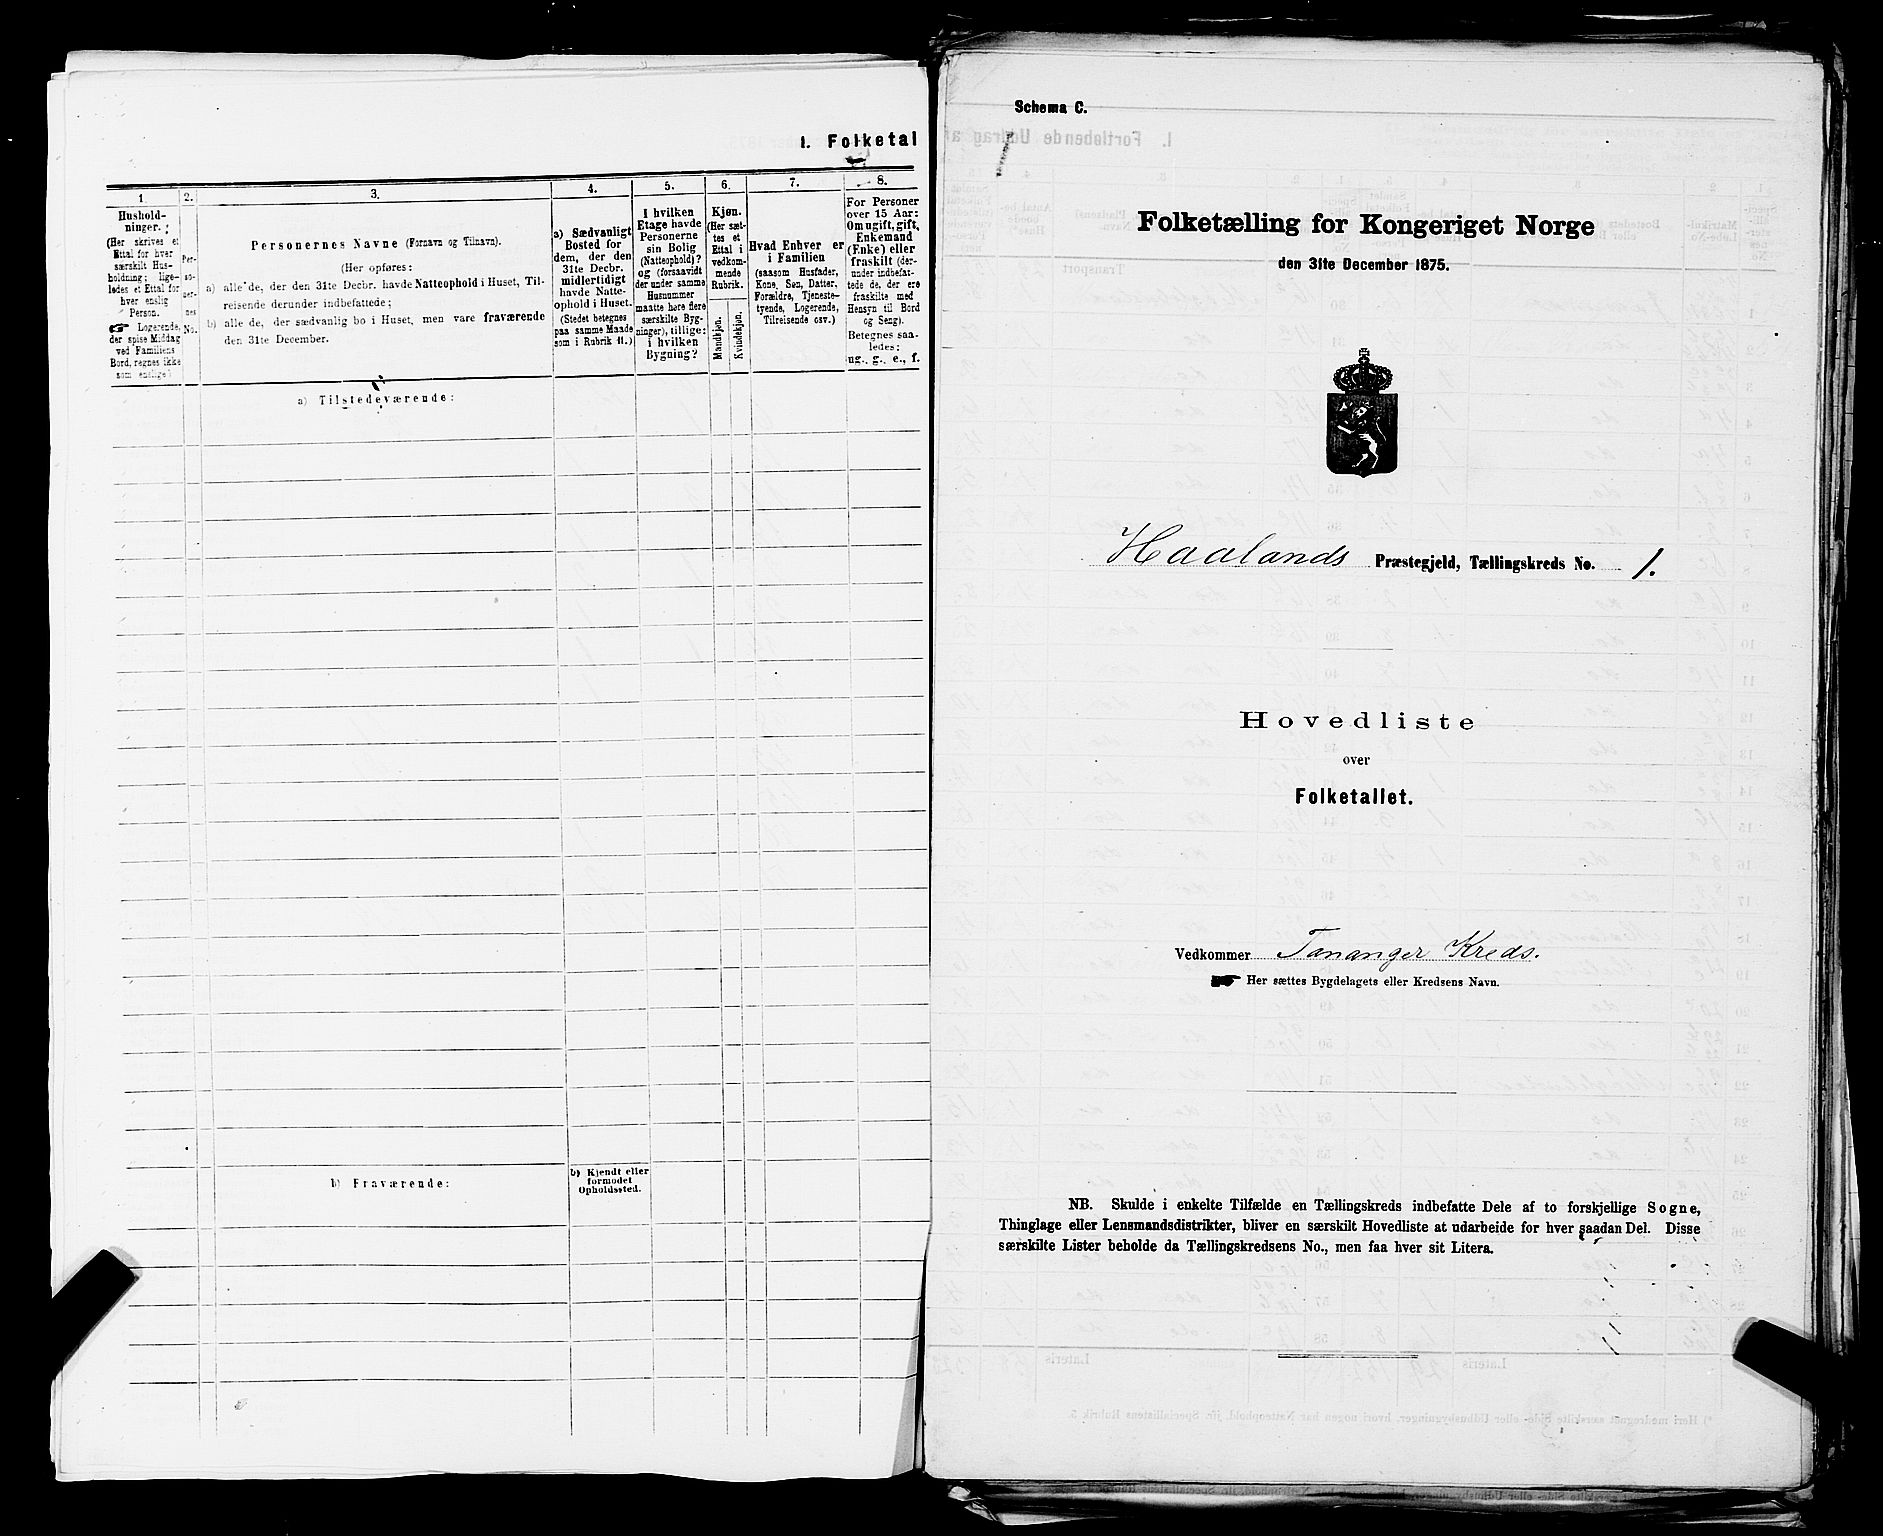 1. Folketal
1.
Hushold-
ninger.
(Her skrives et
Ettal for hver
særskilt Hus-
holdning; lige-
ledes et Ettal for
hver enslig
Person.
☞ Logerende,
der spise Middag
ved Familiens
Bord, regnes ikke
som enslige)
2.
Per-
so-
ner-
nes
No.
3.
Personernes Navne (Fornavn og Tilnavn).
(Her opføres:
a) alle de, der den 31te Decbr. havde Natteophold i Huset, Til-
reisende derunder indbefattede;
b) alle de, der sædvanlig bo i Huset, men vare fraværende
den 31te December.
4.
a) Sædvanligt
Bosted for
dem, der den
31te Decbr.
midlertidigt
havde Natte-
ophold i Huset.
(Stedet betegnes
paa samme Maade
som i Rubrik 11.)
5.
I hvilken
Etage havde
Personerne
sin Bolig
(Natteophold)?
og (forsaavidt
der under samme
Husnummer
maatte høre flere
særskilte Byg-
ninger), tillige:
i hvilken
Bygning?
6.
Kjøn.
(Her sæt-
tes et
Ettal i
vedkom-
mende
Rubrik.
Mandkjøn.
Kvindekjøn.
7.
Hvad Enhver er
i Familien
(saasom Husfader,
Kone, Søn, Datter,
Forældre, Tjeneste-
tyende, Logerende,
Tilreisende osv.)
8.
For Personer
over 15 Aar:
Om ugift, gift,
Enkemand
(Enke) eller
fraskilt (der-
under indbefat-
tede de, der ere
fraskilte med
Hensyn til Bord
og Seng).
Betegnes saa-
ledes:
ug., g., e., f.
a) Tilstedeværende:
b) Fraværende:
b) Kjendt eller
formodet
Opholdssted.
Schema C.
Folketælling for Kongeriget Norge
den 31te December 1875.
Haalands Præstegjeld, Tællingskreds No. 1.
Hovedliste
over
Folketallet.
Vedkommer Tananger Kreds.
☞ Her sættes Bygdelagets eller Kredsens Navn.
NB. Skulde i enkelte Tilfælde en Tællingskreds indbefatte Dele af to forskjellige Sogne,
Thinglage eller Lensmandsdistrikter, bliver en særskilt Hovedliste at udarbeide for hver saadan Del. Disse
særskilte Lister beholde da Tællingskredsens No., men faa hver sit Litera.